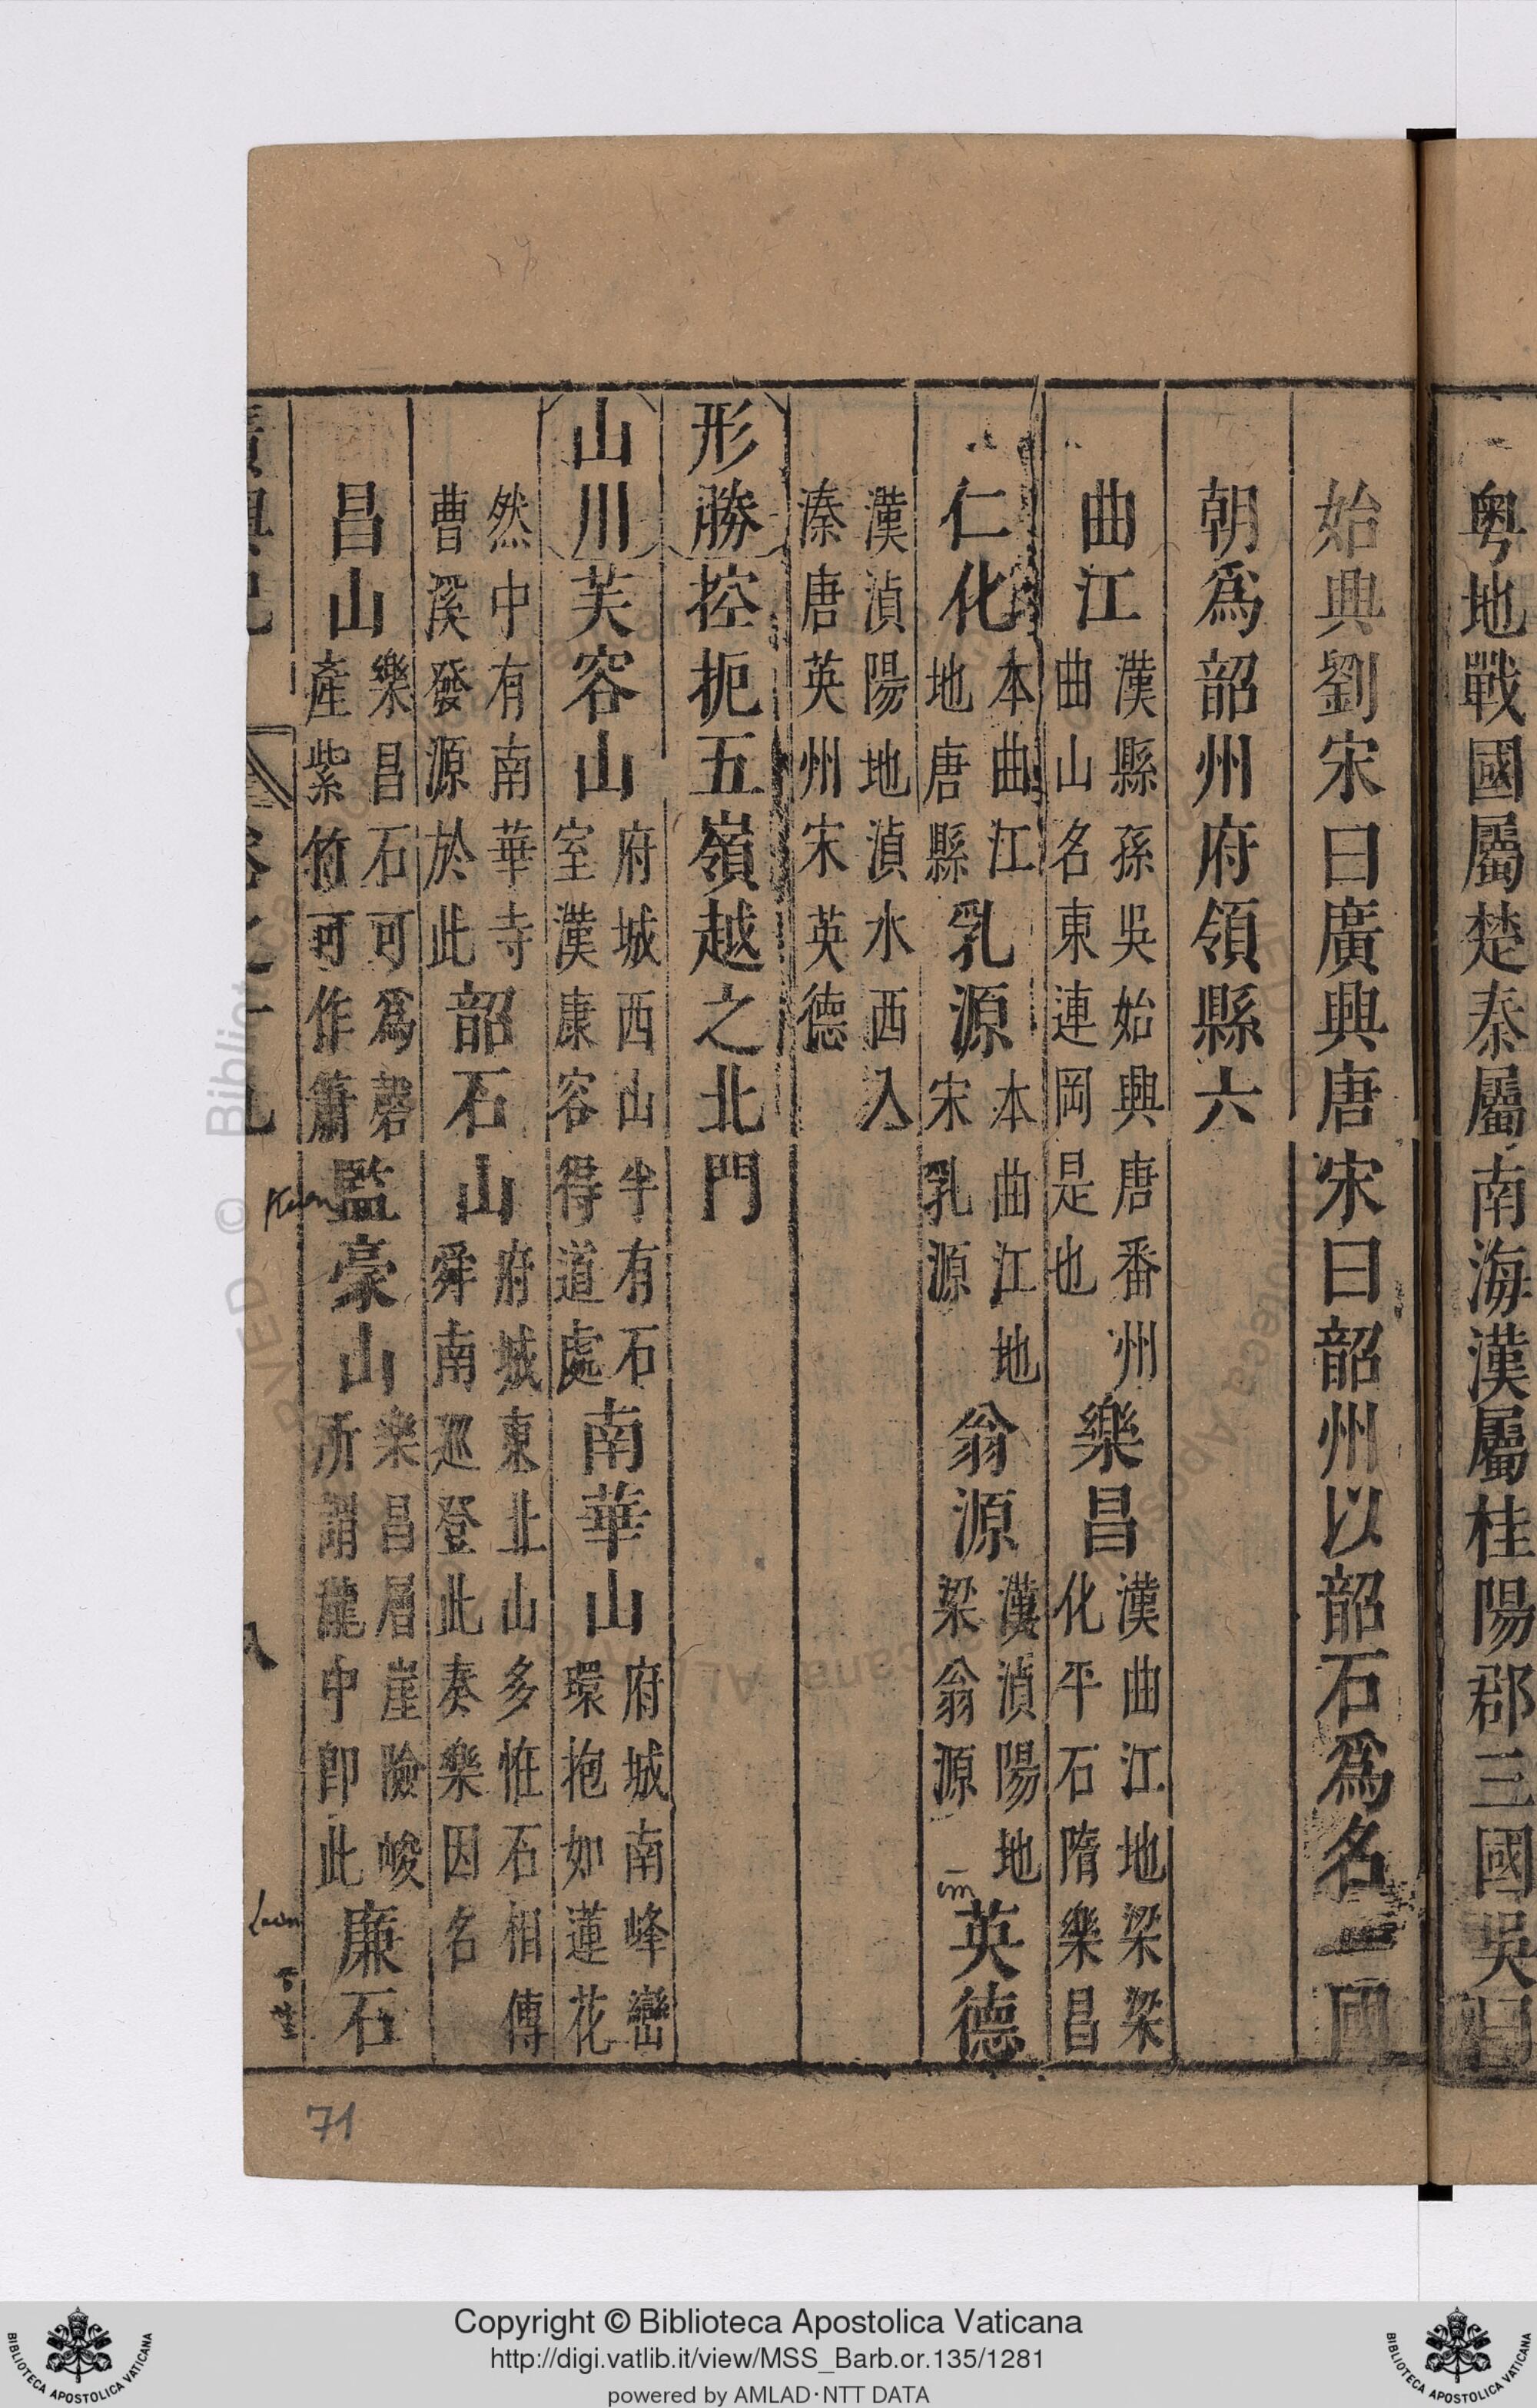 粤地戰國屬楚秦屬南海漢屬桂陽郡三國吳曰
始興劉宋曰廣興唐宋曰韶州以韶石為名國
朝為韶州府領縣六
曲江漢縣孫吳始興唐番州曲山名東連岡是也樂昌漢曲江地梁梁化平石隋樂昌
仁化本曲江地唐縣乳源本曲江地宋乳源翁源漢湞陽地梁翁源英德
漢湞陽地湞水西入溱唐英州宋英德
形勝控扼五嶺越之北門
山川芙容山府城西山半有石室漢康容得道處南華山府城南峰巒環抱如蓮花
然中有南華寺曹溪發源於此韶石山府城東北山多恠石相傳舜南巡登此奏樂因名
昌山樂昌石可為磬產紫竹可作簫監豪山樂昌層崖險峻所謂瀧中即此廉石
八
71
Copyright © Biblioteca Apostolica Vaticana
http://digi.vatlib.it/view/MSS_Barb.or.135/1281
powered by AMLAD·NTT DATA
BIBLIOTECA APOSTOLICA VATICANA
BIBLIOTECA APOSTOLICA VATICANA